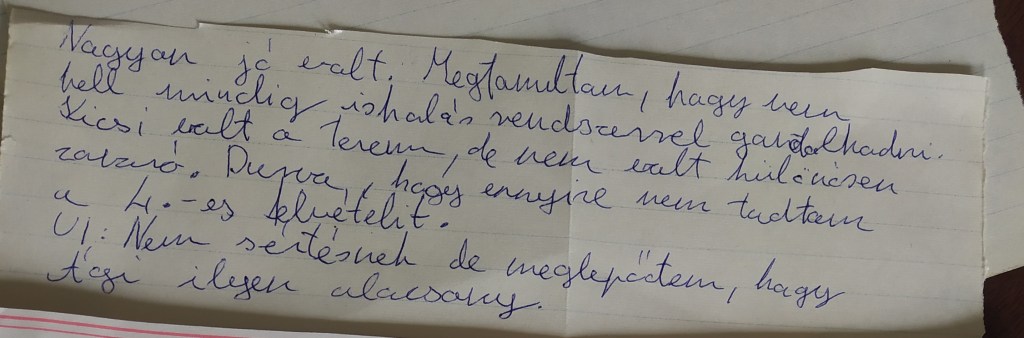 Nagyon jó volt. Megtanultam, hogy nem
kell mindig iskolás rendszerrel gondolkodni.
Kicsi volt a terem, de nem volt különösen
zavaró. Durva, hogy ennyire nem tudtam
a 4.-es felvételit.
UI: Nem sértésnek de meglepődtem, hogy
Ági ilyen alacsony.